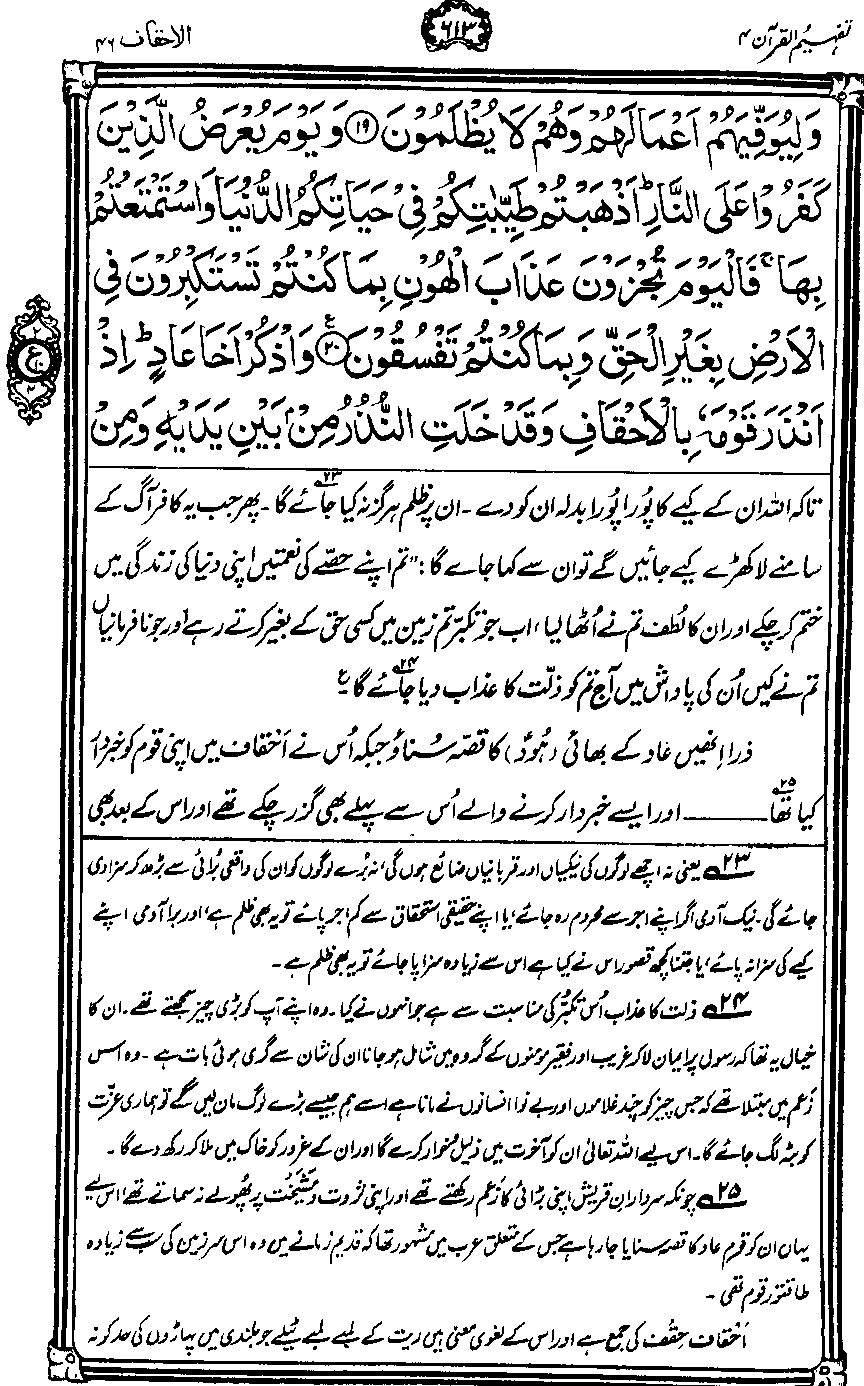 تفہیم القرآن ۴
۶۱۳
الاحقاف ۴۶
وَلِيُوَفِّيَهُمْ اَعْمَالَهُمْ وَهُمْ لَا يُظْلَمُوْنَ ۱۹ وَيَوْمَ يُعْرَضُ الَّذِيْنَ
كَفَرُوْا عَلَى النَّارِ ؕ اَذْهَبْتُمْ طَيِّبٰتِكُمْ فِيْ حَيَاتِكُمُ الدُّنْيَا وَاسْتَمْتَعْتُمْ
بِهَا ۚ فَالْيَوْمَ تُجْزَوْنَ عَذَابَ الْهُوْنِ بِمَا كُنْتُمْ تَسْتَكْبِرُوْنَ فِي
الْاَرْضِ بِغَيْرِ الْحَقِّ وَبِمَا كُنْتُمْ تَفْسُقُوْنَ ۲۰ ع وَاذْكُرْ اَخَا عَادٍ ؕ اِذْ
۲ ع ۲
اَنْذَرَ قَوْمَهٗ بِالْاَحْقَافِ وَقَدْ خَلَتِ النُّذُرُ مِنْۢ بَيْنِ يَدَيْهِ وَمِنْ
تاکہ اللہ ان کے کیے کا پُورا پُورا بدلہ ان کو دے۔ ان پر ظلم ہرگز نہ کیا جائے گا۲۳۔ پھر جب یہ کافر آگ کے
سامنے لا کھڑے کیے جائیں گے تو ان سے کہا جائے گا: "تم اپنے حصّے کی نعمتیں اپنی دنیا کی زندگی میں
ختم کر چکے اور ان کا لُطف تم نے اُٹھا لیا، اب جو تکبّر تم زمین میں کسی حق کے بغیر کرتے رہے اور جو نافرمانیاں
تم نے کیں اُن کی پاداش میں آج تم کو ذلّت کا عذاب دیا جائے گا۲۴ ع
ذرا اِنھیں عاد کے بھائی (ہُودؑ) کا قصّہ سُناؤ جبکہ اُس نے اَحقاف میں اپنی قوم کو خبردار
کیا تھا۲۵ ــــــ اور ایسے خبردار کرنے والے اُس سے پہلے بھی گزر چکے تھے اور اس کے بعد بھی
۲۳ یعنی نہ اچھے لوگوں کی نیکیاں اور قربانیاں ضائع ہوں گی، نہ بُرے لوگوں کو ان کی واقعی بُرائی سے بڑھ کر سزا دی
جائے گی۔ نیک آدمی اگر اپنے اجر سے محروم رہ جائے، یا اپنے حقیقی استحقاق سے کم اجر پائے تو یہ بھی ظلم ہے، اور برا آدمی اپنے
کیے کی سزا نہ پائے، یا جتنا کچھ قصور اس نے کیا ہے اس سے زیادہ سزا پا جائے تو یہ بھی ظلم ہے۔
۲۴ ذلت کا عذاب اُس تکبُّر کی مناسبت سے ہے جو انہوں نے کیا۔ وہ اپنے آپ کو بڑی چیز سمجھتے تھے۔ ان کا
خیال یہ تھا کہ رسول پر ایمان لا کر غریب اور فقیر مومنوں کے گروہ میں شامل ہو جانا ان کی شان سے گری ہوئی بات ہے۔ وہ اس
زَعم میں مبتلا تھے کہ جس چیز کو چند غلاموں اور بے نوا انسانوں نے مانا ہے اسے ہم جیسے بڑے لوگ مان لیں گے تو ہماری عزّت
کو بٹہ لگ جائے گا۔ اس لیے اللہ تعالیٰ ان کو آخرت میں ذلیل و خوار کرے گا اور ان کے غرور کو خاک میں ملا کر رکھ دے گا۔
۲۵ چونکہ سردارانِ قریش اپنی بڑائی کا زَعم رکھتے تھے اور اپنی ثروت و مَشیخَت پر پُھولے نہ سماتے تھے، اس لیے
یہاں ان کو قومِ عاد کا قصہ سنایا جا رہا ہے جس کے متعلق عرب میں مشہور تھا کہ قدیم زمانے میں وہ اس سرزمین کی سب سے زیادہ
طاقتور قوم تھی۔
اَحقاف حِقف کی جمع ہے اور اس کے لغوی معنی ہیں ریت کے لمبے لمبے ٹیلے جو بلندی میں پہاڑوں کی حد کو نہ